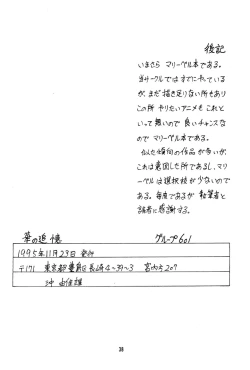 後記
いまさら マリーベル本である。
当サークルではすでにやっている
が、まだ描き足りない所もあり
この所 やりたいアニメも これと
いって無いので 良いチャンスな
ので マリーベル本である。
似た傾向の作品が多いが、
これは意図した所であるし、マリ
ーベルは選択枝が少ないので
ある。毎度であるが 執筆者と
読者に感謝する。
葉の追憶
グループ601
1995年11月23日 発行
〒171 東京都豊島区長崎4-39-3 宮内方207
沖 由佳雄
38